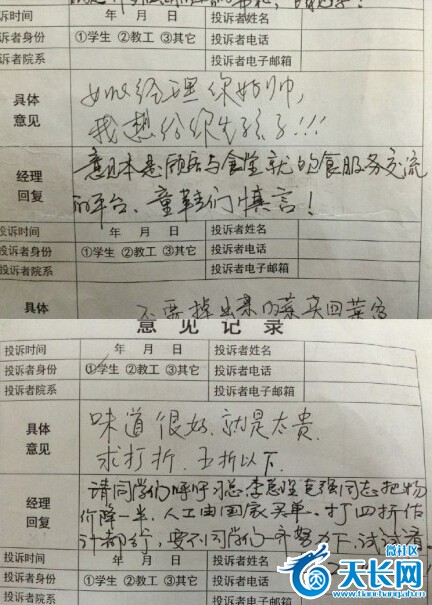 投诉时间
年 月 日
投诉者姓名
投诉者身份
①学生 ②教工 ③其它
投诉者电话
投诉者院系
投诉者电子邮箱
具体
意见
经理你好帅,
我想给你生孩子!!!
经理
回复
意见本是顾客与食堂就饮食服务交流
的平台、童鞋们慎言!
投诉时间
年 月 日
投诉者姓名
投诉者身份
①学生 ②教工 ③其它
投诉者电话
投诉者院系
投诉者电子邮箱
具体
不要掉出来的菜
意见记录
投诉时间
年 月 日
投诉者姓名
投诉者身份
①学生 ②教工 ③其它
投诉者电话
投诉者院系
投诉者电子邮箱
具体
意见
味道很好.就是太贵.
求打折.五折以下.
经理
回复
请同学们呼呼习总.李总理克强同志把物
价降一半、人工由国家买单、打四折估
计都行,要不同学们一齐努力下.试试看
投诉时间
年 月 日
投诉者身份
①学生 ②教工 ③其它
投诉者院系
微社区
天长网
www.tianchang.ah.cn